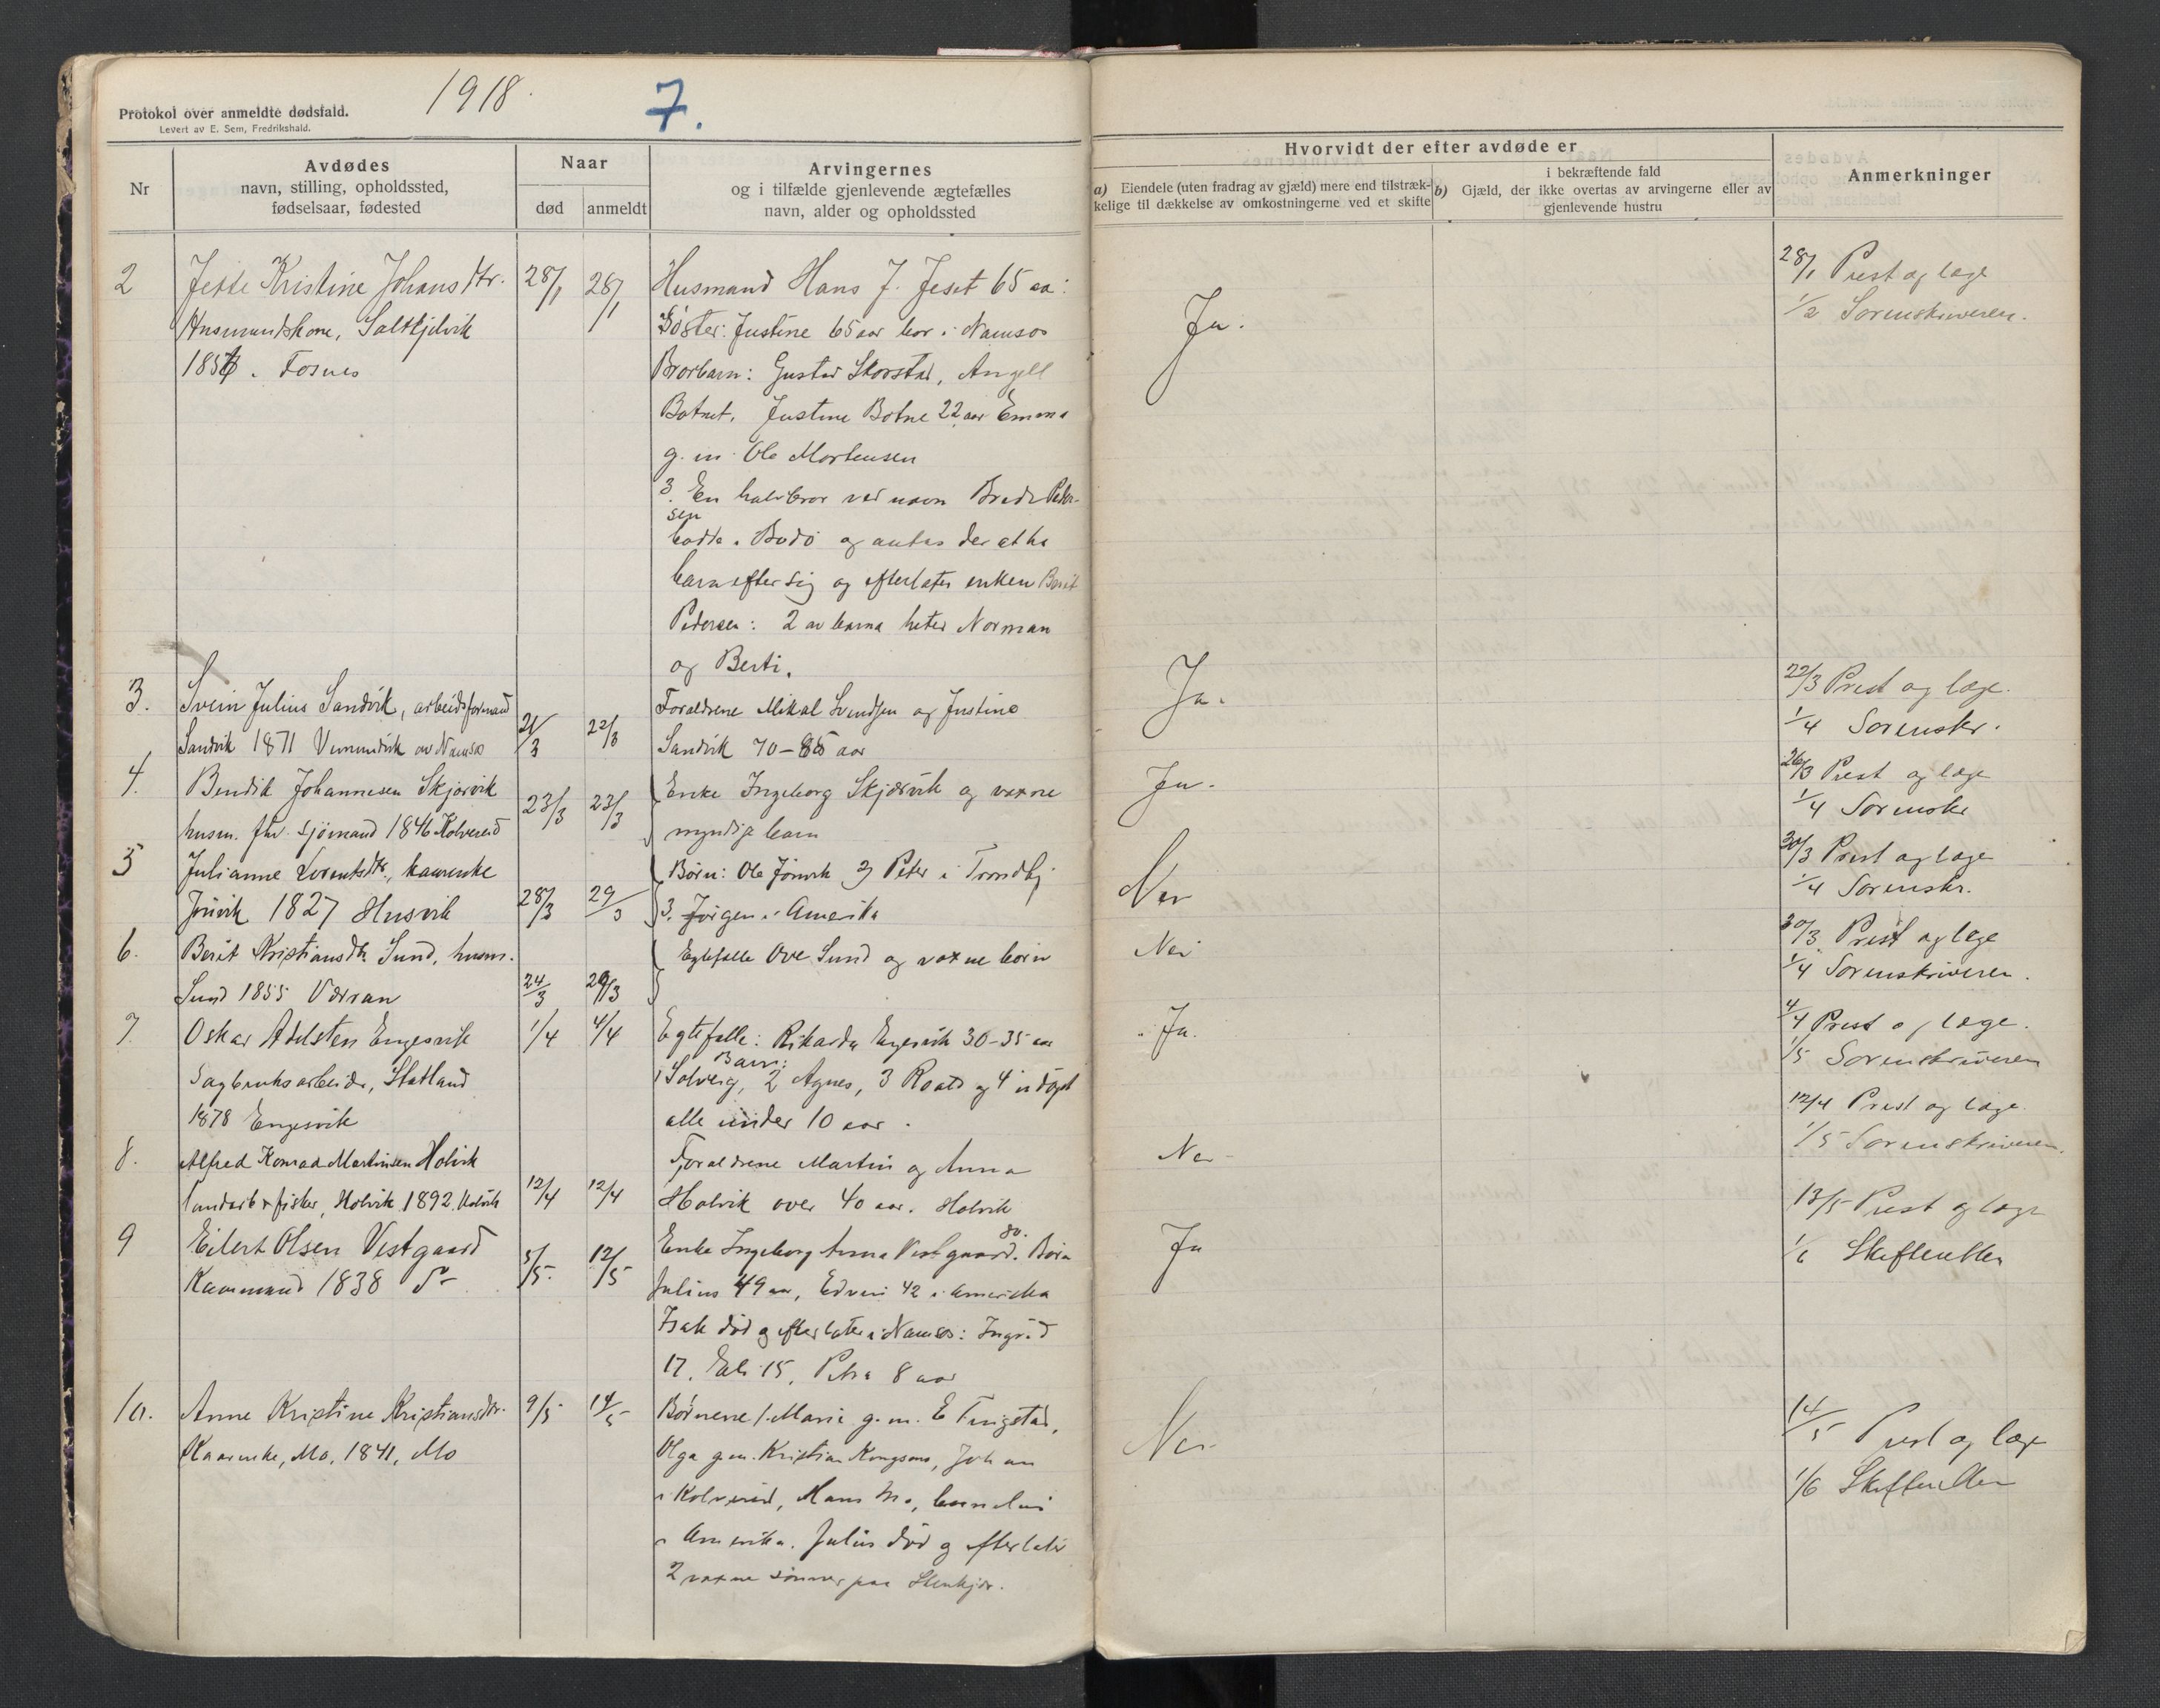 1918.
7.
Protokol over anmeldte dødsfald.
Levert av E. Sem, Fredrikshald.
Nr
Avdødes
navn, stilling, opholdssted,
fødselsaar, fødested
Naar
død
anmeldt
Arvingernes
og i tilfælde gjenlevende ægtefælles
navn, alder og opholdssted
Hvorvidt der efter avdøde er
a) Eiendele (uten fradrag av gjæld) mere end tilstræk-
kelige til dækkelse av omkostningerne ved et skifte
i bekræftende fald
b) Gjæld, der ikke overtas av arvingerne eller av
gjenlevende hustru
Anmerkninger
2
Kristine Johansdtr.
Husmandskone,
Fosnes
28/1
28/1
Husmand Hans J. Jeset 65 aa:
Søster: Justine 65 aar bor i Namsos
Brorbarn: Gustav Skorstad, Angell
Botnet, Justine Botne 22 aar Emma
g. m. Ole Mortensen
3. En halvbror ved navn Peder-
sen
bodde i Bodø og antas der at ha
barn efter sig og efterlater enken Berit
Pedersen: 2 av barna heter Norman
og Berti.
Ja.
28/1 Prest og læge
1/2 Sorenskriveren.
3.
Svein Julius Sandvik, arbeidsformand
Sandvik 1871 av Namsos
21/3
22/3
Forældrene Mikal Svendsen og Justine
Sandvik 70-85 aar
Ja.
22/3 Prest og læge.
1/4 Sorenskr.
4.
Bendik Johannesen Skjærvik
husm. fhv. sjømand 1846 Kolvereid
23/3
23/3
Enke Ingeborg Skjærvik og voxne
myndige barn
Ja.
26/3 Prest og læge
1/4 Sorenskr
5
Julianne Lorentsdtr., kaarenke
Jøvik 1827 Husvik
28/3
29/3
Børn: Ole Jøvik 2) Peter i Trondhj
3. Jørgen i Amerika
Nei
30/3 Prest og læge
1/4 Sorenskr.
6.
Berit Kristiansdtr Sund, husm.
Sund 1855 Værran
24/3
29/3
Egtefælle Ove Sund og voxne børn
Nei
30/3. Prest og læge
1/4 Sorenskriveren.
7.
Oskar Adelsten Engesvik
Sagbruksarbeider, Statland
1878 Engesvik
1/4
4/4
Egtefælle: Rikarda Engesvik 30-35 aar
Barn:
1 Solveig, 2 Agnes, 3 Roald og 4 udøpt
alle under 10 aar.
Ja.
4/4 Prest og læge.
1/5 Sorenskriveren
8.
Alfred Konrad Martinsen Holvik
landarb & fisker, Holvik 1892. Holvik
12/4
12/4
Forældrene Martin og Anna
Holvik over 40 aar. Holvik
Nei
12/4 Prest og læge.
1/5 Sorenskriveren.
9
Eilert Olsen Vestgaard
Kaarmand 1838
5/5.
12/5
Enke Ingeborg Anna Vestgaard. 80. Børn
Julius 49 aar, Edvin 42 i Amerika
Isak død og efterlater i Namsos: Ingrid
17, Eli 15, Petra 8 aar
Ja
13/5 Prest og læge
1/6 Skifteretten
10.
Anne Kristine Kristiansdtr.
Kaarenke, Mo, 1841, Mo
9/5
14/5
Børnene 1. Marie g. m. E Tingstad,
Olga g.m. Kristian Kongsmo, Johan
i Kolvereid, Hans Mo, Cornelius
i Amerika. Julius død og efterlater
2 voxne sønner paa Stenkjær.
Nei
14/5 Prest og læge
1/6 Skifteretten